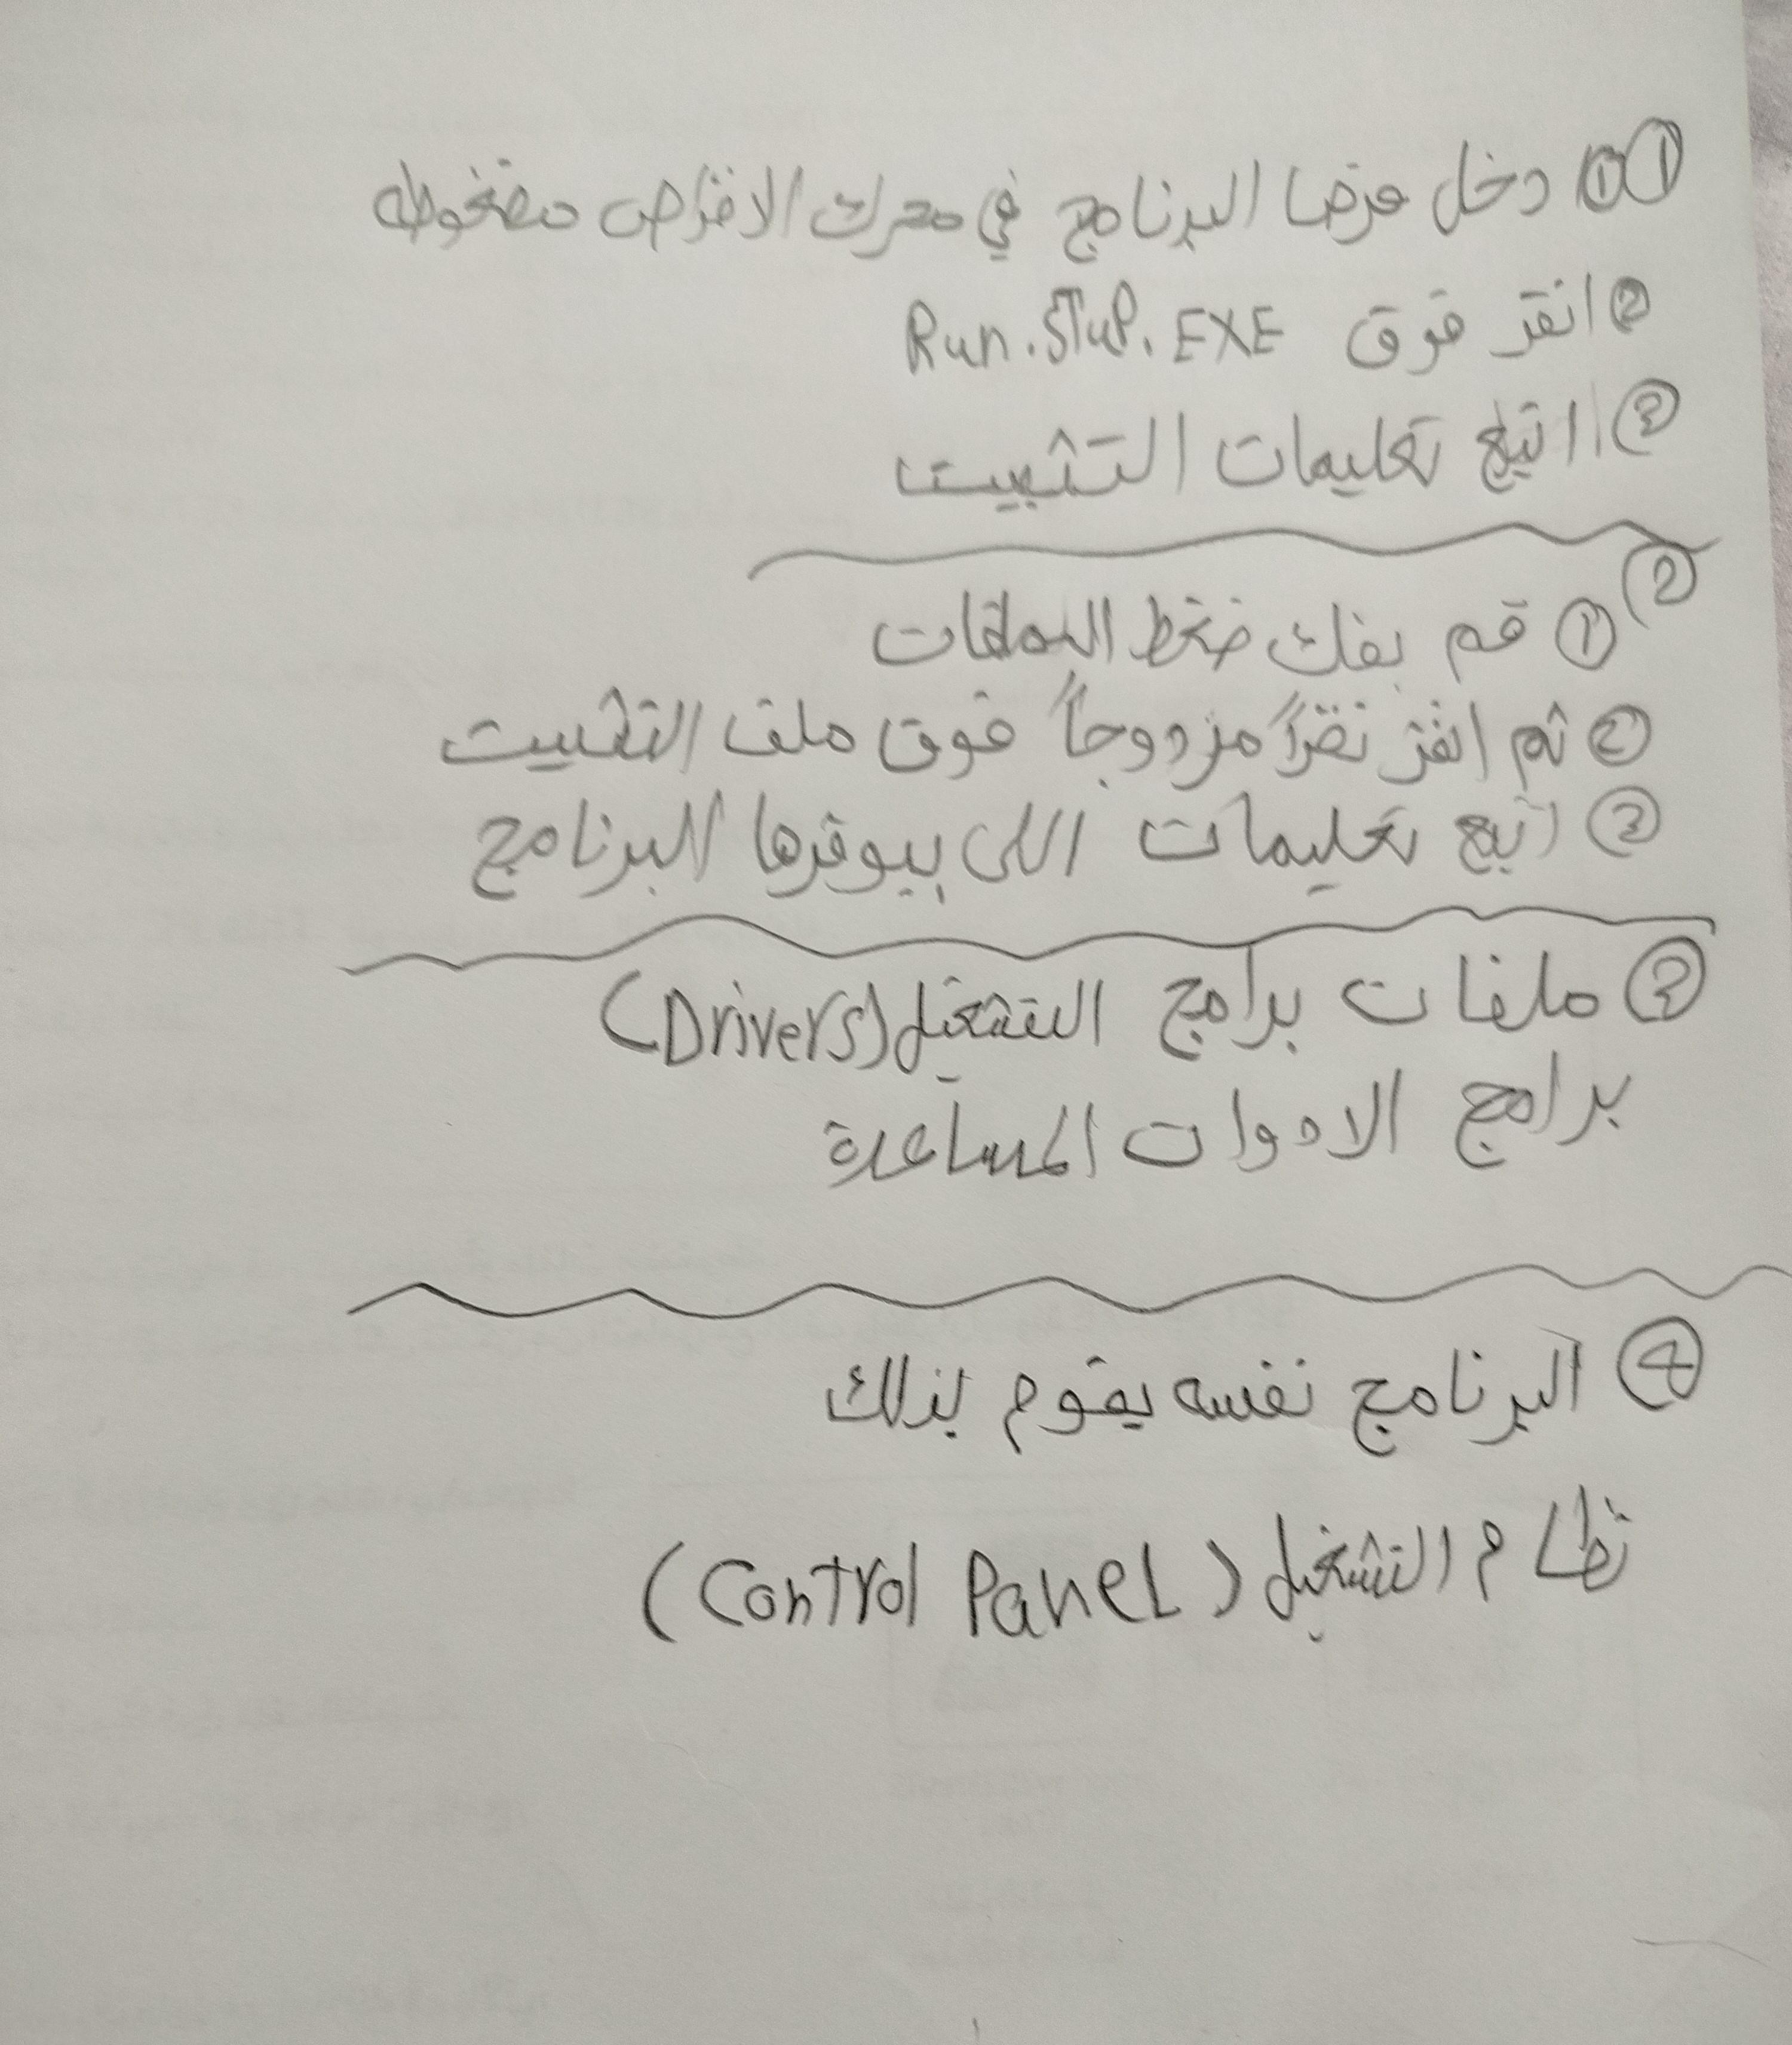 ① ① دخل قرضا البرنامج في محرك الاقراص مضغوطه
② انقر فوق Run.STuP.EXE
③ اتبع تعليمات التثبيت
②
① قم بفك ضغط الملفات
② ثم انقر نقراً مزدوجاً فوق ملف التثبيت
③ اتبع تعليمات اللى بيوفرها البرنامج
③ ملفات برامج التشغيل (Drivers)
برامج الادوات المساعدة
④ البرنامج نفسه يقوم بذلك
نظام التشغيل (Control Panel)